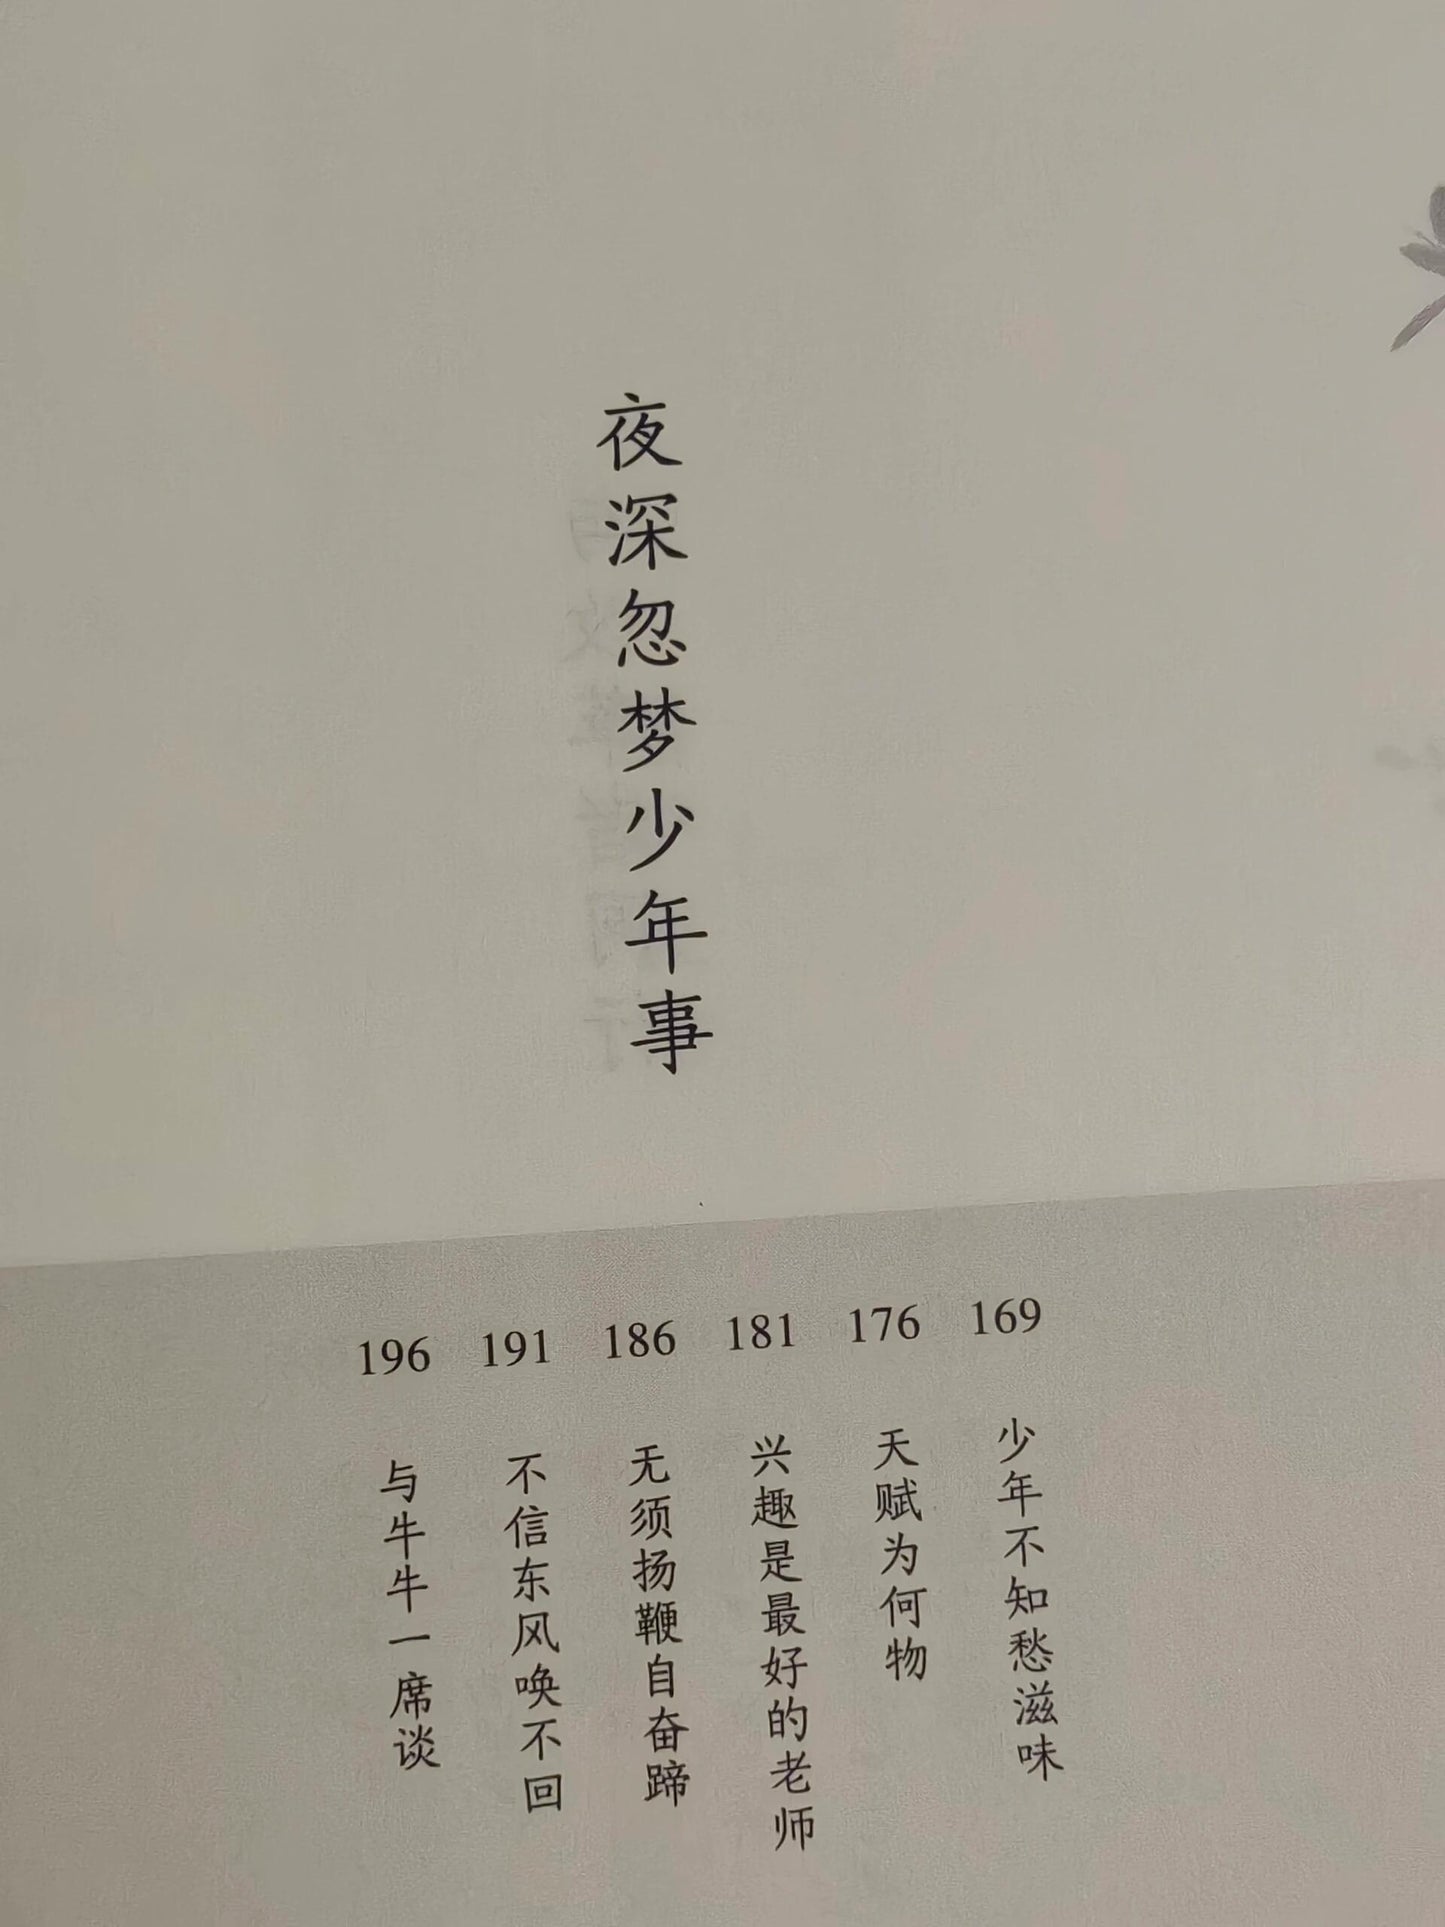 夜深忽梦少年事
169 少年不知愁滋味
176 天赋为何物
181 兴趣是最好的老师
186 无须扬鞭自奋蹄
191 不信东风唤不回
196 与牛牛一席谈